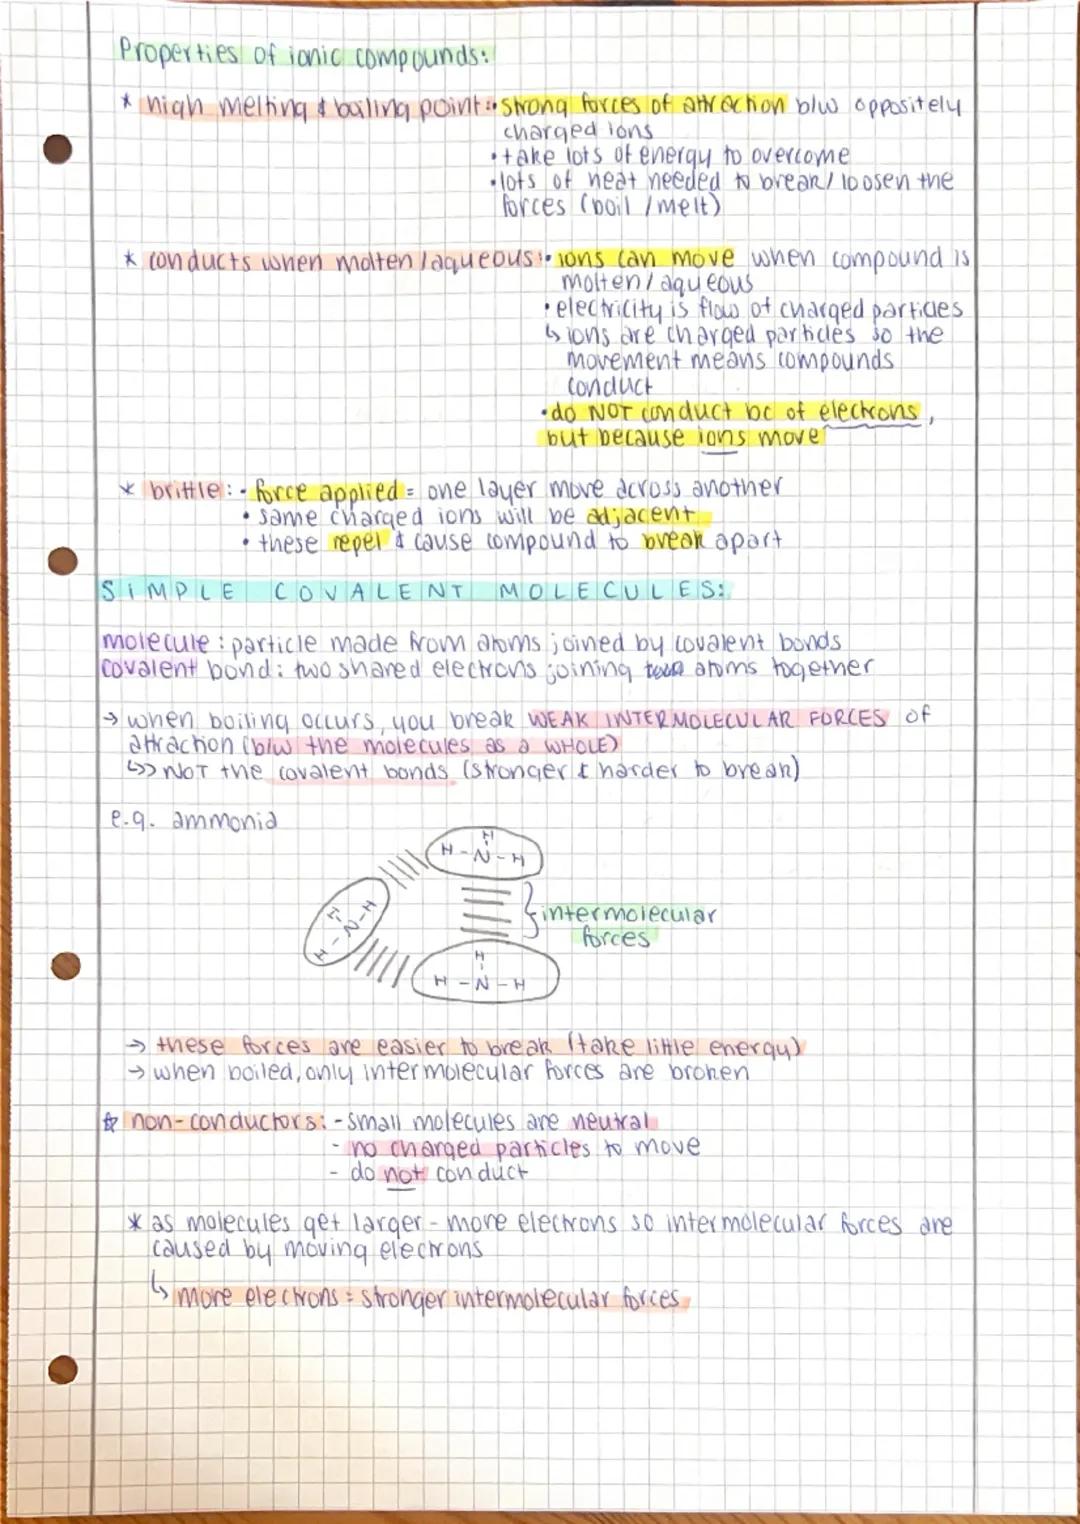 Properties of ionic compounds:
* high melting & boiling point: • strong forces of attraction b/w oppositely
charged ions
• take lots of energy to overcome
• lots of heat needed to break / loosen the
forces (boil / melt)
* conducts when molten / aqueous: • ions can move when compound is
molten / aqueous
• electricity is flow of charged particles
↳ ions are charged particles so the
movement means compounds
conduct
• do NOT conduct bc of electrons,
but because ions move
* brittle: • force applied = one layer move across another
• same charged ions will be adjacent
• these repel & cause compound to break apart
SIMPLE COVALENT MOLECULES:
molecule: particle made from atoms joined by covalent bonds
covalent bond: two shared electrons joining atoms together
→ when boiling occurs, you break WEAK INTERMOLECULAR FORCES of
attraction (b/w the molecules as a WHOLE)
↳> NOT the covalent bonds (stronger & harder to break)
e.g. ammonia
H
H - N - H
H
H - N - H
intermolecular
forces
H
H - N - H
→ these forces are easier to break (take little energy)
→ when boiled, only intermolecular forces are broken
☆ non-conductors: - small molecules are neutral
- no charged particles to move
- do not conduct
* as molecules get larger - more electrons so intermolecular forces are
caused by moving electrons
↳ more electrons = stronger intermolecular forces